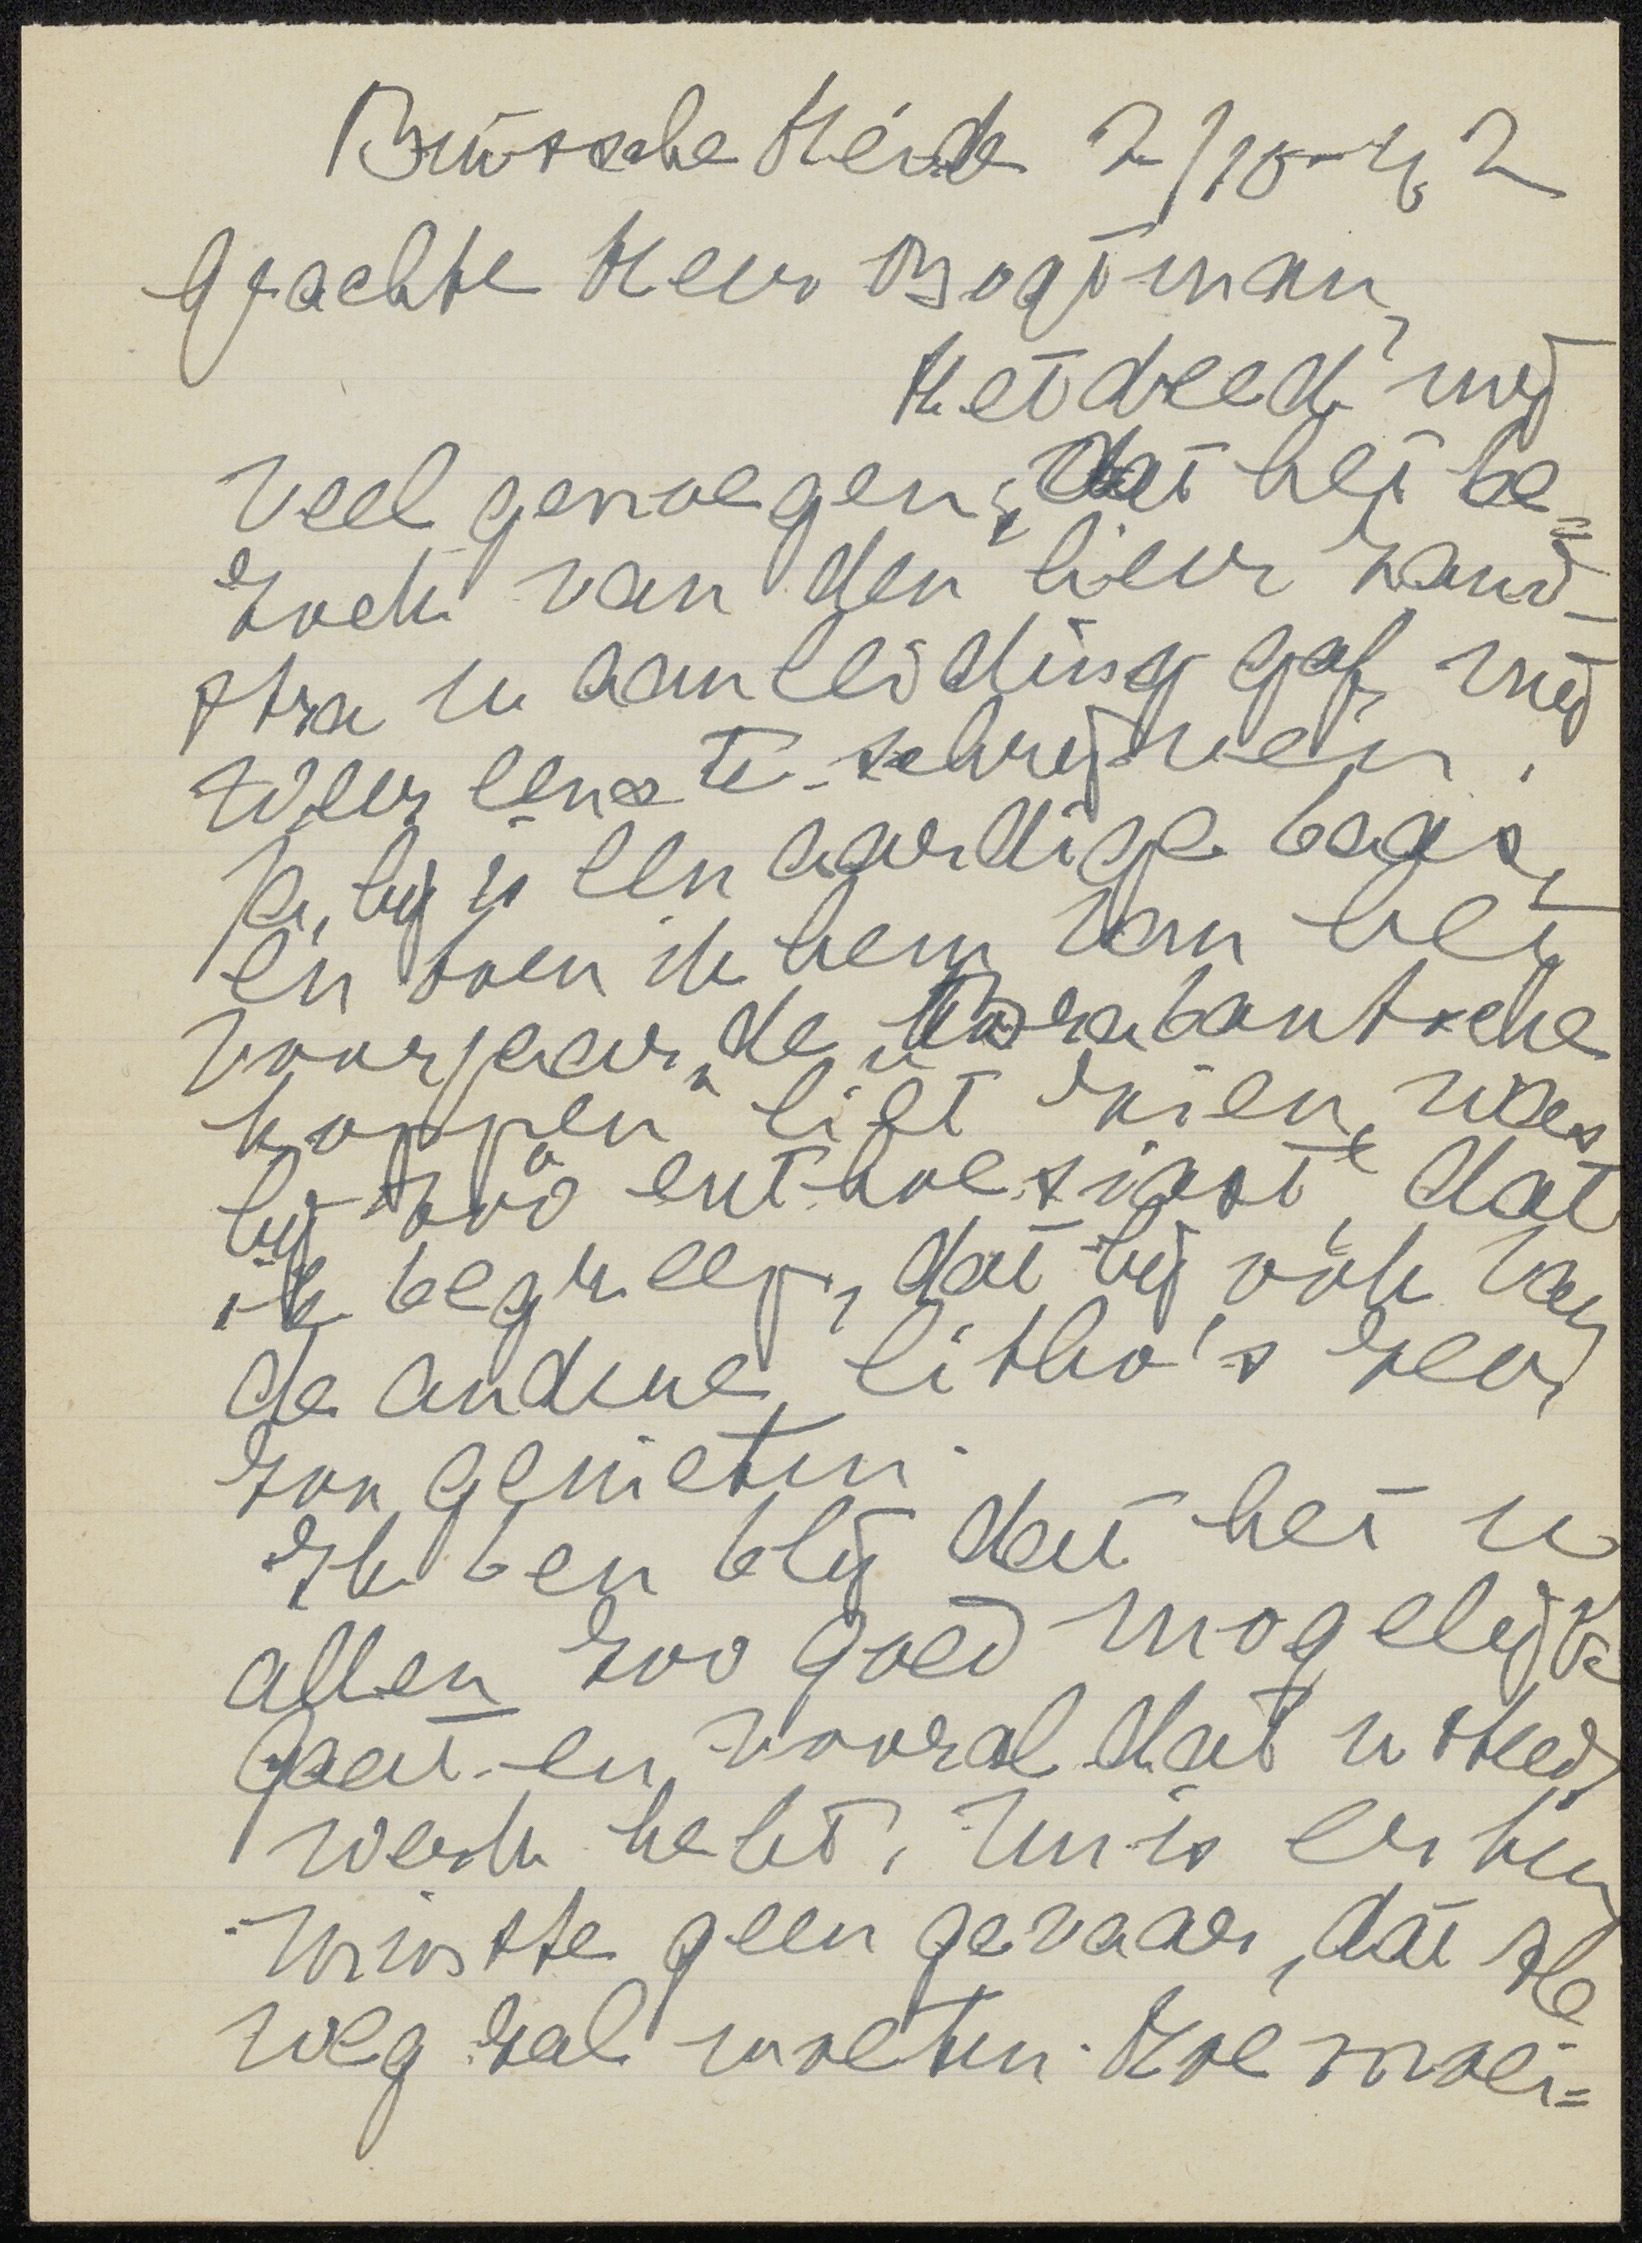 Buissche Heide 2/10-42
Geachte Heer Bogtman,
Het deed mij
veel genoegen, dat het be=
zoek van den heer Zand-
stra u aanleiding gaf mij
weer eens te schrijven.
Ja, hij is een aardige baas,
en toen ik hem van het
voorjaar de "Brabantsche
koppen" liet zien, was
hij zóó enthoesiast, dat
ik begreep, dat hij óók van
de andere litho's zeer
zou genieten.
Ik ben blij dat het u
allen zoo goed mogelijk
gaat en vooral dat u steeds
werk hebt. Nu is er ten
minste geen gevaar, dat
weg zal moeten. Hoe moei=